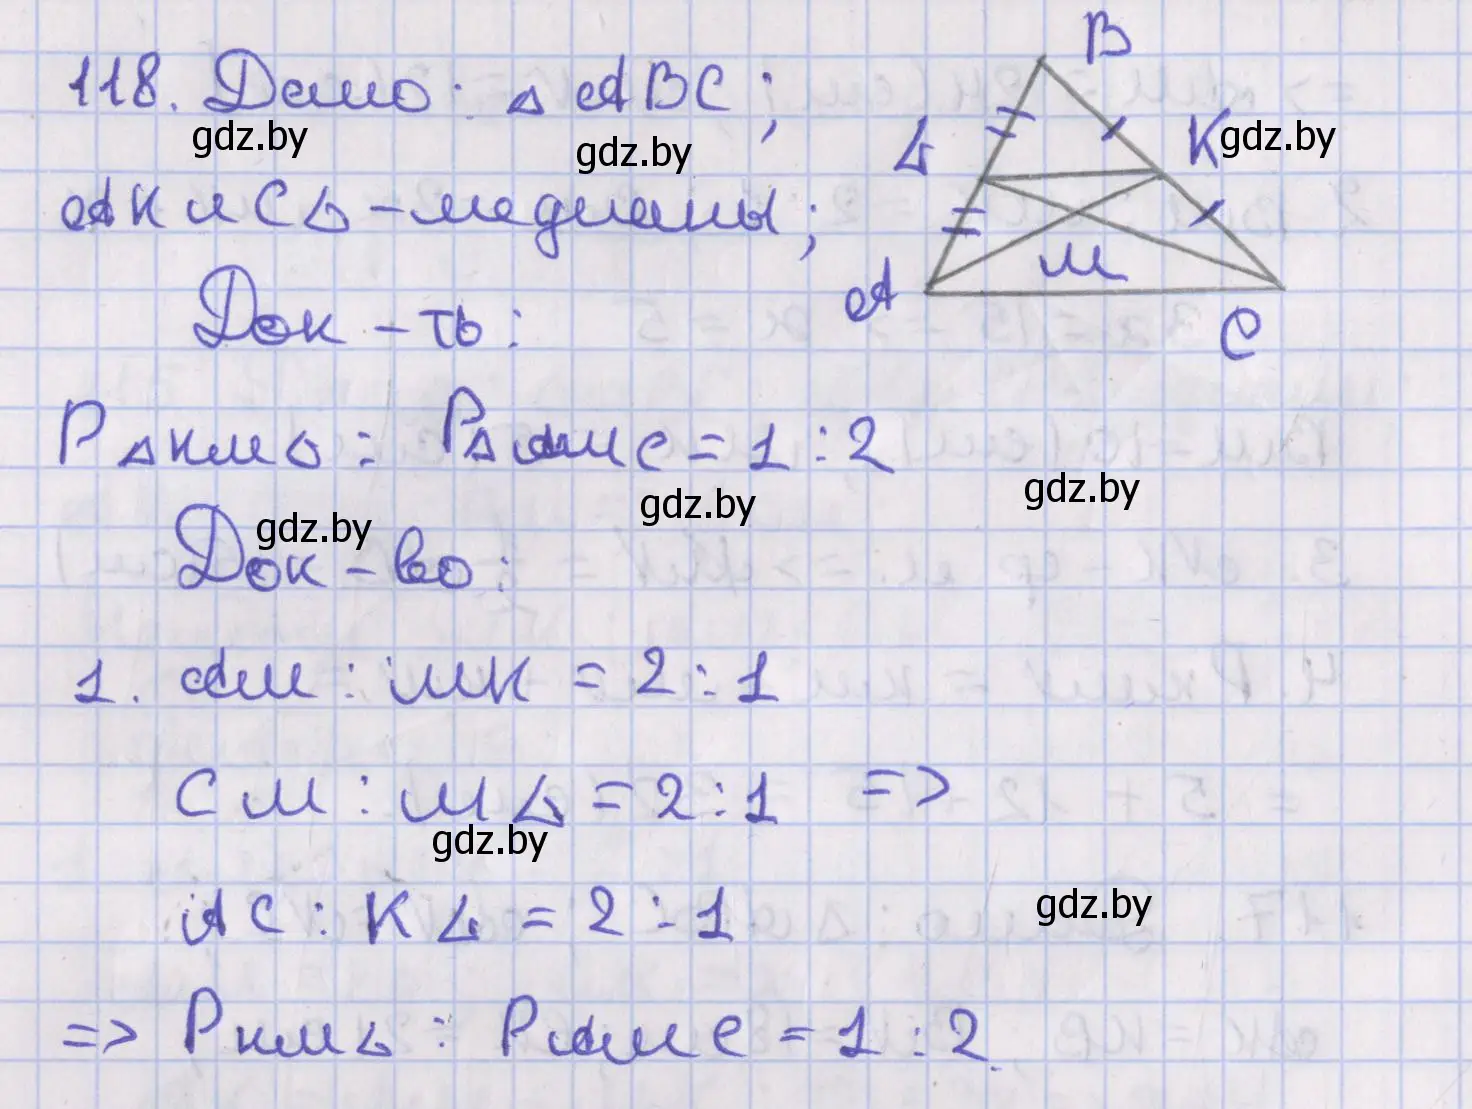 118. Дано: △ABC;
AK и CL - медианы;
Док-ть:
P△KML : P△AMC = 1 : 2
Док-во:
1. AM : MK = 2 : 1
CM : ML = 2 : 1 =>
AC : KL = 2 : 1
=> PKML : PAMC = 1 : 2.
B
L
K
M
A
C
gdz.by
gdz.by
gdz.by
gdz.by
gdz.by
gdz.by
gdz.by
gdz.by